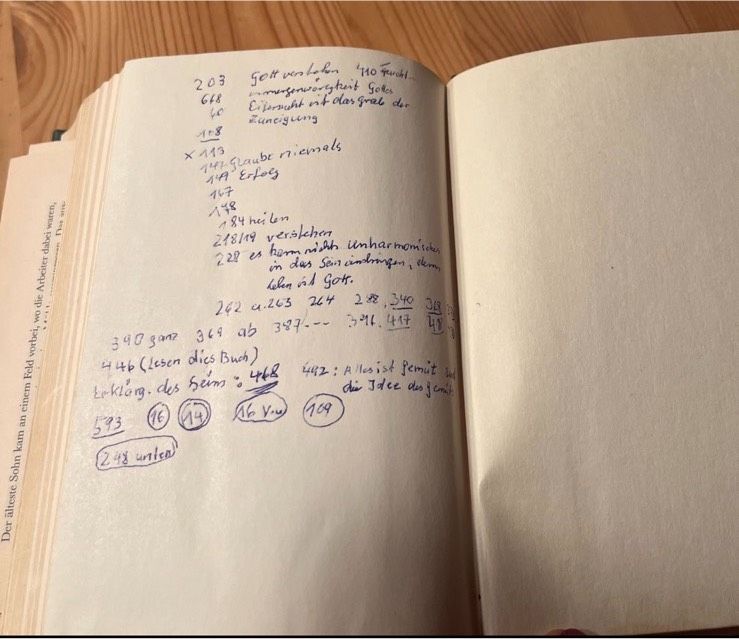 203 Gott verstehen 410 Furcht
668 Immergegenwärtigkeit Gottes
60 Eifersucht ist das Grab der
Zuneigung
178
x 113
142 Glaube niemals
149 Erfolg
167
178
184 heilen
218/19 verstehen
228 es kann nichts Unharmonisches
in das Sein eindringen, denn
Leben ist Gott.
262 u. 263 264 288, 340 368
390 ganz 369 ab 387 --- 396, 417
446 (Lesen dies Buch)
Erklärg. des Seins: 468 492: Alles ist Gemüt und
die Idee des Gemüts
593 16 14 16 109
248 unten
Der älteste Sohn kam an einem Feld vorbei, wo die Arbeiter dabei waren,